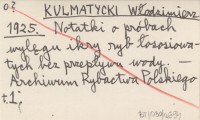 o?
KULMATYCKI Włodzimierz
1925. Notatki o próbach
wylęgu ikry ryb łososiowa-
tych bez przepływu wody. —
Archiwum Rybactwa Polskiego
t.1,